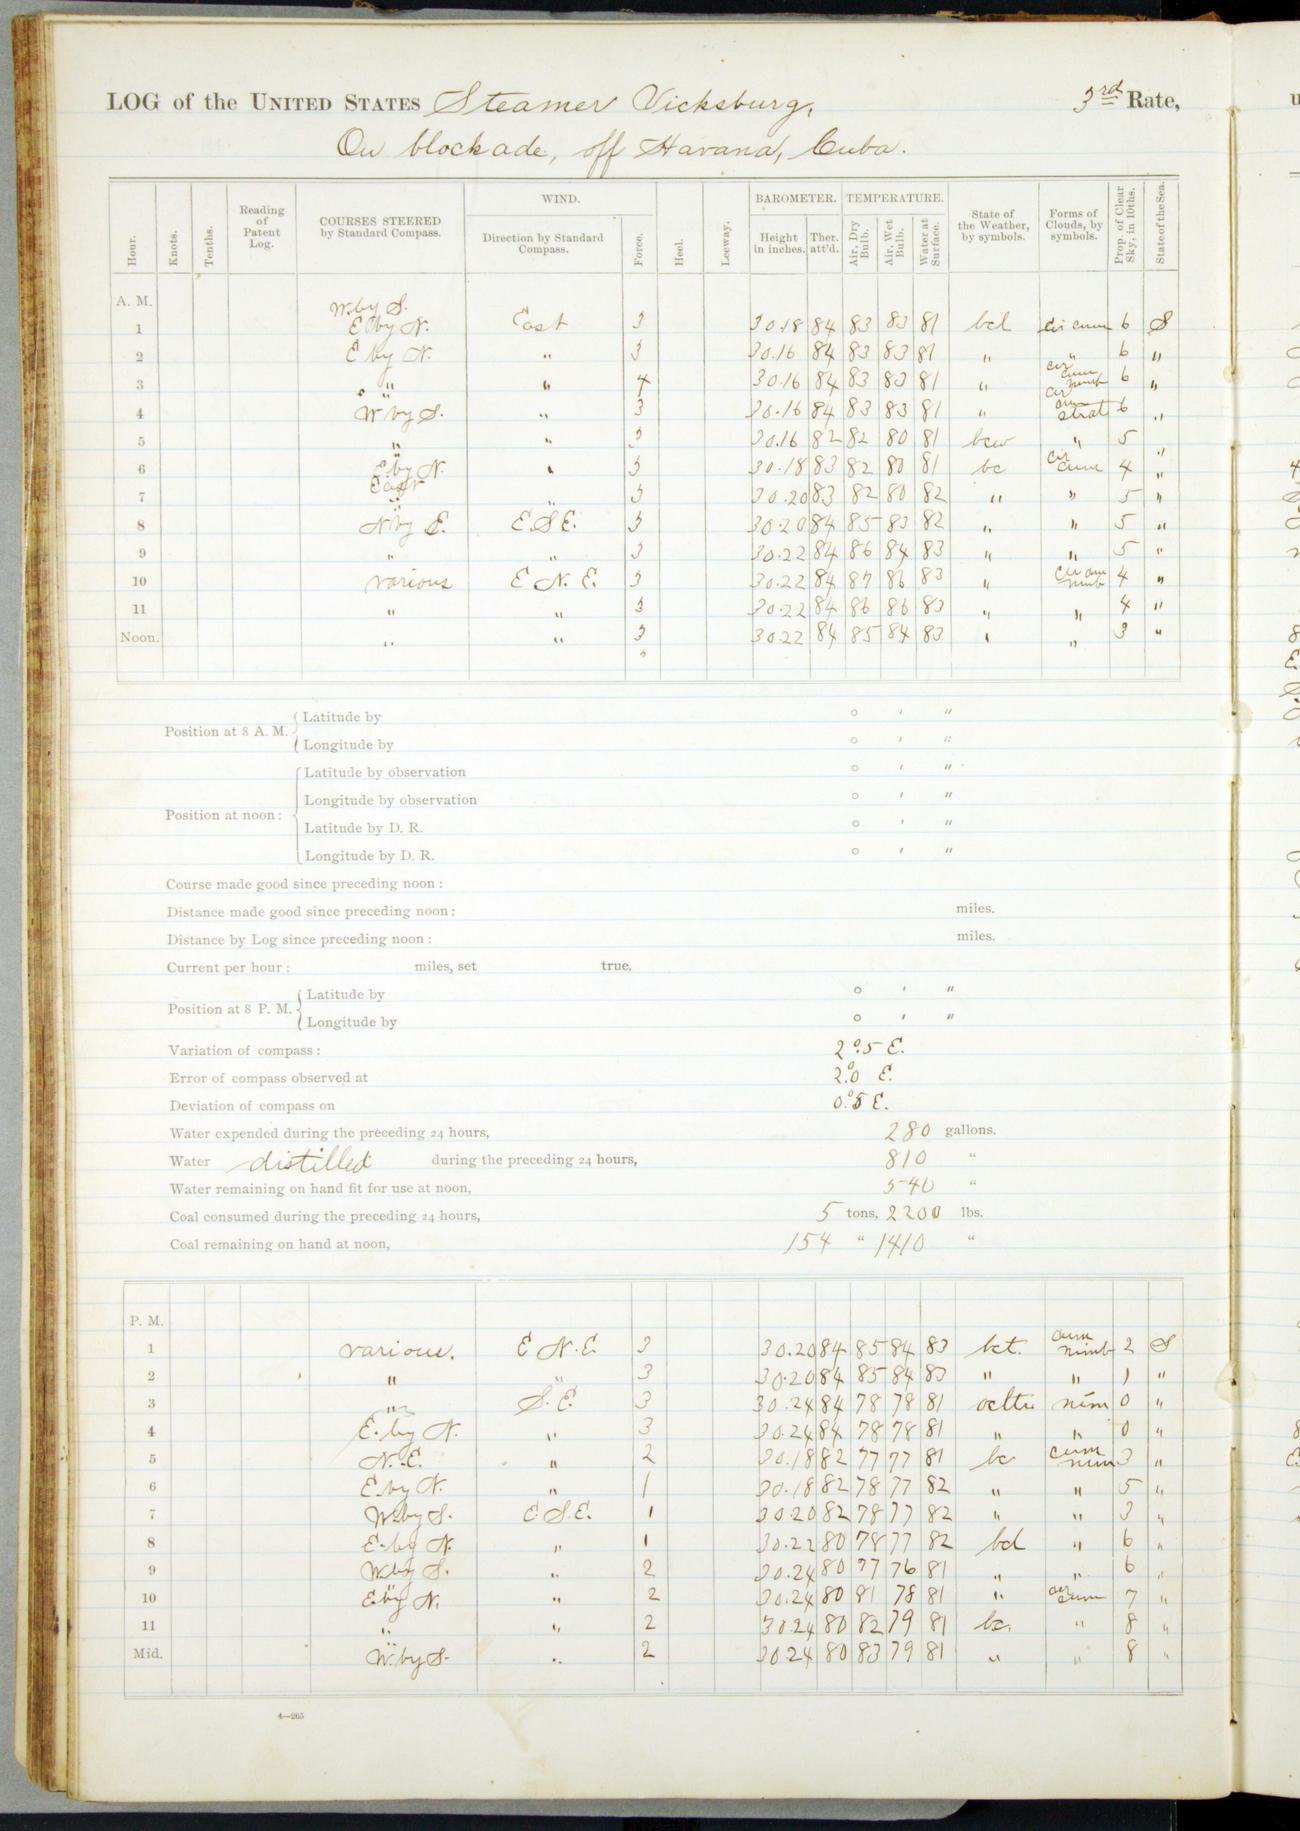 LOG of the UNITED STATES Steamer Vicksburg, 3rd Rate,
On blockade, off Havana, Cuba.
Hour. Knots. Tenths. Reading of Patent Log. COURSES STEERED by Standard Compass. WIND. Direction by Standard Compass. Force. Heel. Leeway. BAROMETER. Height in inches. Ther. att'd. TEMPERATURE. Air, Dry Bulb. Air, Wet Bulb. Water at Surface. State of the Weather, by symbols. Forms of Clouds, by symbols. Prop. of Clear Sky, in 10ths. State of the Sea.
A. M.
W. by S.
1 E by N. East 3 30.18 84 83 83 81 bcl cir cum 6 S
2 E by N. " 3 30.16 84 83 83 81 " " 6 "
3 " " 4 30.16 84 83 83 81 " cir cum nimb 6 "
4 W by S. " 3 30.16 84 83 83 81 " cir cum strat 6 "
5 " " 3 30.16 82 82 80 81 bcw " 5 "
6 E by N. " 3 30.18 83 82 80 81 bc cir cum 4 "
East
7 " " 3 30.20 83 82 80 82 " " 5 "
8 N by E. E.S.E. 3 30.20 84 85 83 82 " " 5 "
9 " " 3 30.22 84 86 84 83 " " 5 "
10 various E N. E. 3 30.22 84 87 86 83 " cir cum nimb 4 "
11 " " 3 30.22 84 86 86 83 " " 4 "
Noon. " " 3 30.22 84 85 84 83 " " 3 "
Position at 8 A. M. Latitude by ° ′ ″
Longitude by ° ′ ″
Position at noon: Latitude by observation ° ′ ″
Longitude by observation ° ′ ″
Latitude by D. R. ° ′ ″
Longitude by D. R. ° ′ ″
Course made good since preceding noon:
Distance made good since preceding noon: miles.
Distance by Log since preceding noon: miles.
Current per hour: miles, set true.
Position at 8 P. M. Latitude by ° ′ ″
Longitude by ° ′ ″
Variation of compass: 2°.5 E.
Error of compass observed at 2°.0 E.
Deviation of compass on 0°.5 E.
Water expended during the preceding 24 hours, 280 gallons.
Water distilled during the preceding 24 hours, 810 "
Water remaining on hand fit for use at noon, 540 "
Coal consumed during the preceding 24 hours, 5 tons, 2200 lbs.
Coal remaining on hand at noon, 154 " 1410 "
P. M.
1 various. E N.E. 3 30.20 84 85 84 83 bct. cum nimb 2 S
2 " " 3 30.20 84 85 84 83 " " 1 "
3 " S. E. 3 30.24 84 78 78 81 nim 0 "
4 E. by N. " 3 30.24 84 78 78 81 " " 0 "
5 N. E. " 2 30.18 82 77 77 81 bc cum nim 3 "
6 E by N. " 1 30.18 82 78 77 82 " " 5 "
7 W. by S. E.S.E. 1 30.20 82 78 77 82 " " 3 "
8 E. by N. " 1 30.22 80 78 77 82 bcl " 6 "
9 W. by S. " 2 30.24 80 77 76 81 " " 6 "
10 E. by N. " 2 30.24 80 81 78 81 " cir cum 7 "
11 " " 2 30.24 80 82 79 81 bc. " 8 "
Mid. W. by S. " 2 30.24 80 83 79 81 " " 8 "
4—265